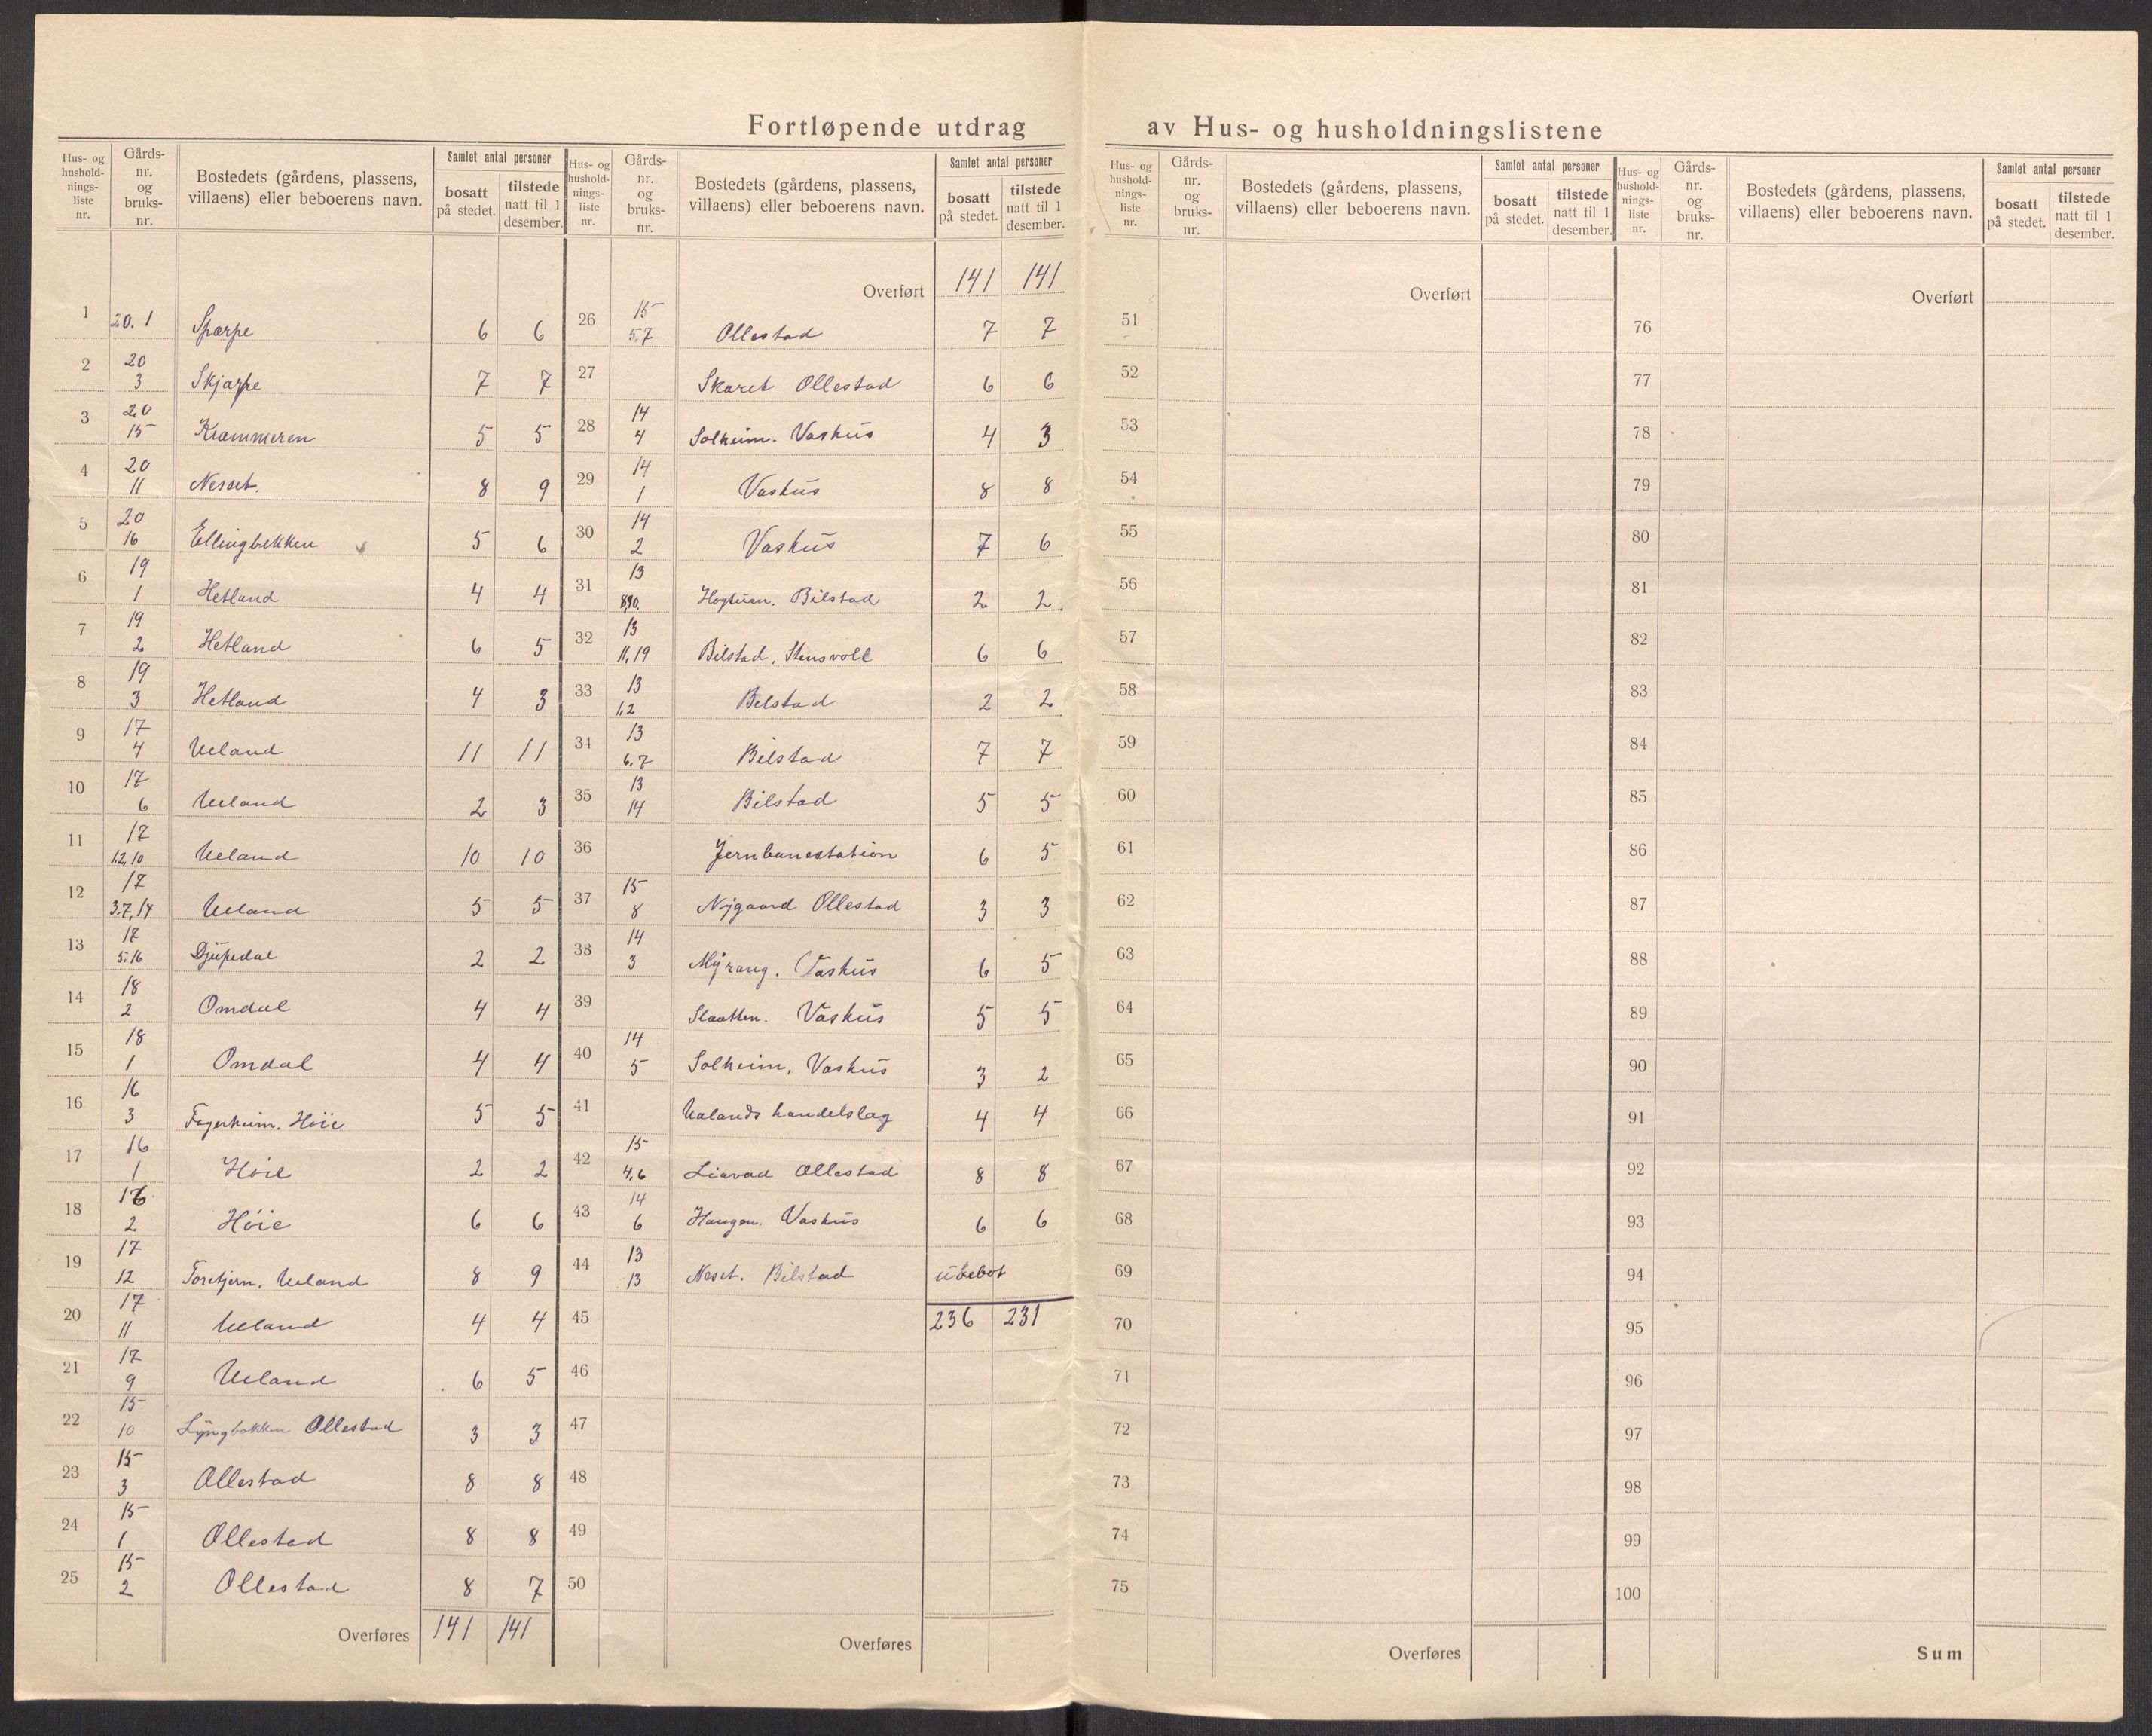 Fortløpende utdrag av Hus- og husholdningslistene
Hus- og husholdnings-liste nr. | Gårds-nr. og bruks-nr. | Bostedets (gårdens, plassens, villaens) eller beboerens navn. | Samlet antal personer bosatt på stedet. | tilstede natt til 1 desember.
1 | 20. 1 | Skjerpe | 6 | 6
2 | 20 3 | Skjarpe | 7 | 7
3 | 20 15 | Krammeren | 5 | 5
4 | 20 11 | Nesset. | 8 | 9
5 | 20 16 | Ellingbekken | 5 | 6
6 | 19 1 | Hetland | 4 | 4
7 | 19 2 | Hetland | 6 | 5
8 | 19 3 | Hetland | 4 | 3
9 | 17 4 | Ueland | 11 | 11
10 | 17 6 | Ueland | 2 | 3
11 | 17 1,2,10 | Ueland | 10 | 10
12 | 17 3,7,14 | Ueland | 5 | 5
13 | 17 5,16 | Djupedal | 2 | 2
14 | 18 2 | Omdal | 4 | 4
15 | 18 1 | Omdal | 4 | 4
16 | 16 3 | Fagerheim. Höie | 5 | 5
17 | 16 1 | Höie | 2 | 2
18 | 16 2 | Höie | 6 | 6
19 | 17 12 | Toretjern. Ueland | 8 | 9
20 | 17 11 | Ueland | 4 | 4
21 | 17 9 | Ueland | 6 | 5
22 | 15 10 | Lyngbakken Ollestad | 3 | 3
23 | 15 3 | Ollestad | 8 | 8
24 | 15 1 | Ollestad | 8 | 8
25 | 15 2 | Ollestad | 8 | 7
Overføres | 141 | 141
Hus- og husholdnings-liste nr. | Gårds-nr. og bruks-nr. | Bostedets (gårdens, plassens, villaens) eller beboerens navn. | Samlet antal personer bosatt på stedet. | tilstede natt til 1 desember.
Overført | 141 | 141
26 | 15 5,7 | Ollestad | 7 | 7
27 | Skaret Ollestad | 6 | 6
28 | 14 4 | Solheim. Vaskus | 4 | 3
29 | 14 1 | Vaskus | 8 | 8
30 | 14 2 | Vaskus | 7 | 6
31 | 13 8,10. | Bilstad | 2 | 2
32 | 13 11,19 | Bilstad, Stensvoll | 6 | 6
33 | 13 1,2 | Bilstad | 2 | 2
34 | 13 6,7 | Bilstad | 7 | 7
35 | 13 14 | Bilstad | 5 | 5
36 | Jernbanestation | 6 | 5
37 | 15 8 | Nygaard Ollestad | 3 | 3
38 | 14 3 | Myrang. Vaskus | 6 | 5
39 | Slaatten. Vaskus | 5 | 5
40 | 14 5 | Solheim, Vaskus | 3 | 2
41 | Ualands handelslag | 4 | 4
42 | 15 4,6 | Liavad Ollestad | 8 | 8
43 | 14 6 | Haugen. Vaskus | 6 | 6
44 | 13 13 | Neset. Bilstad | ubebot
45 | 236 | 231
46
47
48
49
50
Overføres
Hus- og husholdnings-liste nr. | Gårds-nr. og bruks-nr. | Bostedets (gårdens, plassens, villaens) eller beboerens navn. | Samlet antal personer bosatt på stedet. | tilstede natt til 1 desember.
Overført
51
52
53
54
55
56
57
58
59
60
61
62
63
64
65
66
67
68
69
70
71
72
73
74
75
Overføres
Hus- og husholdnings-liste nr. | Gårds-nr. og bruks-nr. | Bostedets (gårdens, plassens, villaens) eller beboerens navn. | Samlet antal personer bosatt på stedet. | tilstede natt til 1 desember.
Overført
76
77
78
79
80
81
82
83
84
85
86
87
88
89
90
91
92
93
94
95
96
97
98
99
100
Sum